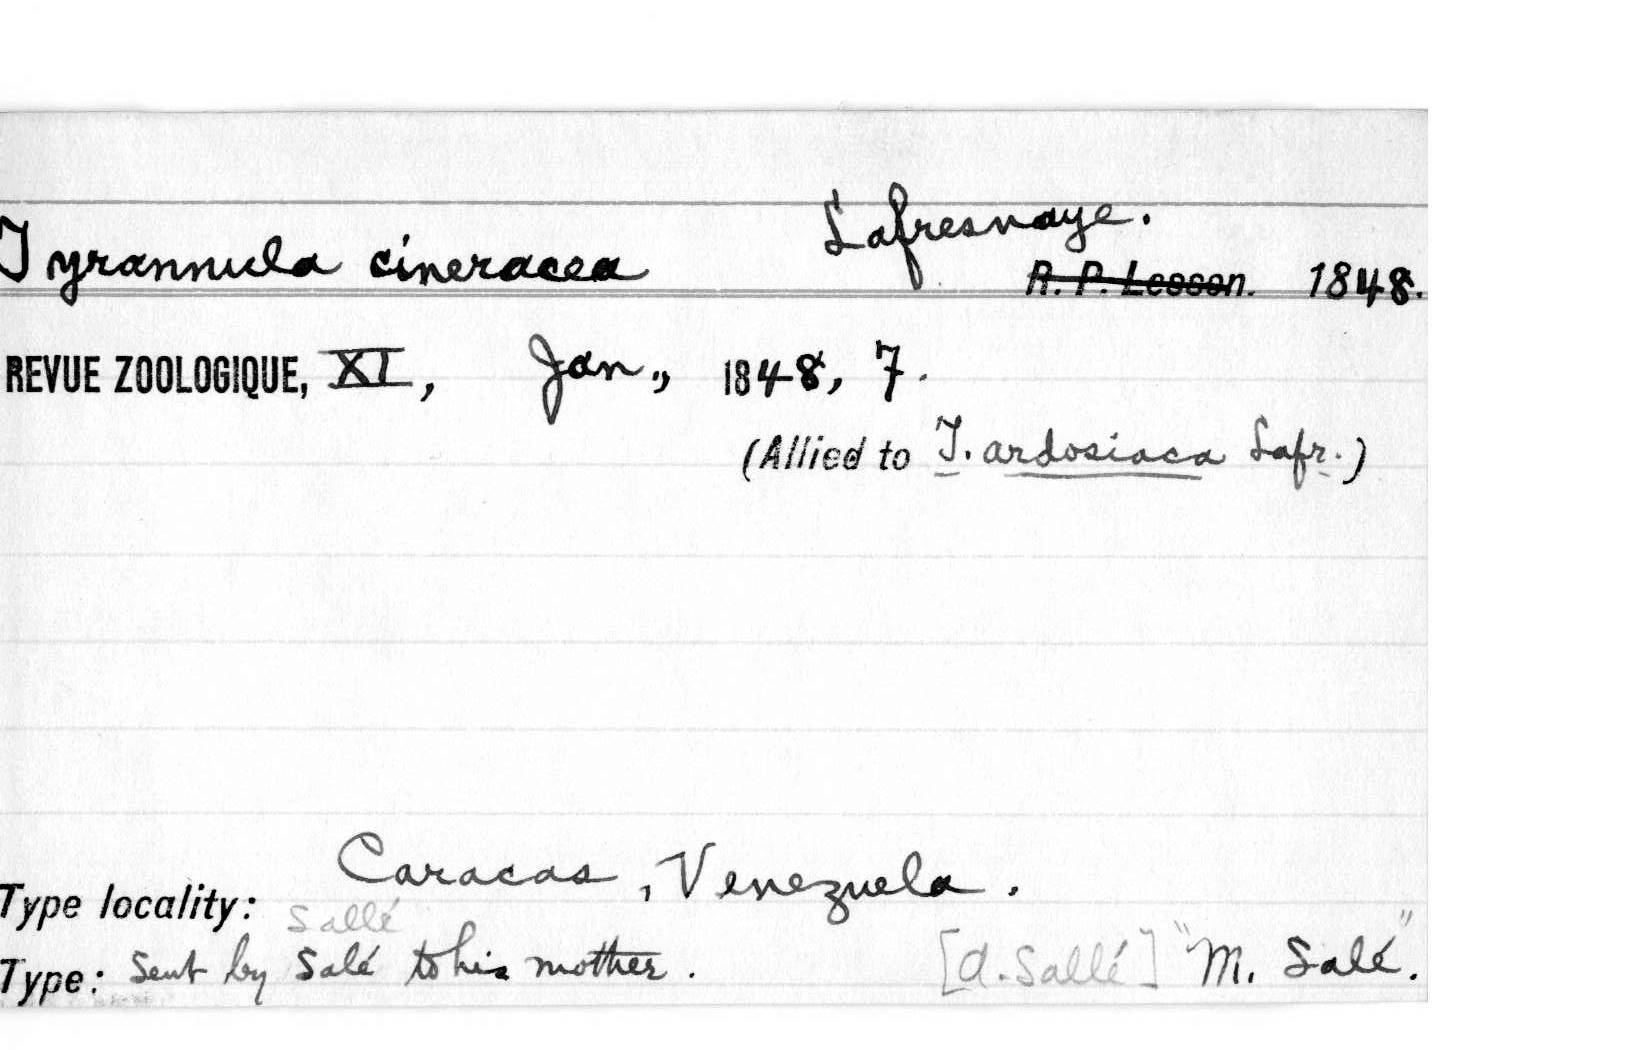 Lafresnaye.
Tyrannula cineracea R. P. Lesson. 1848.
REVUE ZOOLOGIQUE, XI, Jan., 1848, 7.
(Allied to T. ardosiaca Lafr.)
Caracas, Venezuela.
Type locality:
Sallé
Type: Sent by Salé to his mother. [A. Sallé] "M. Salé".